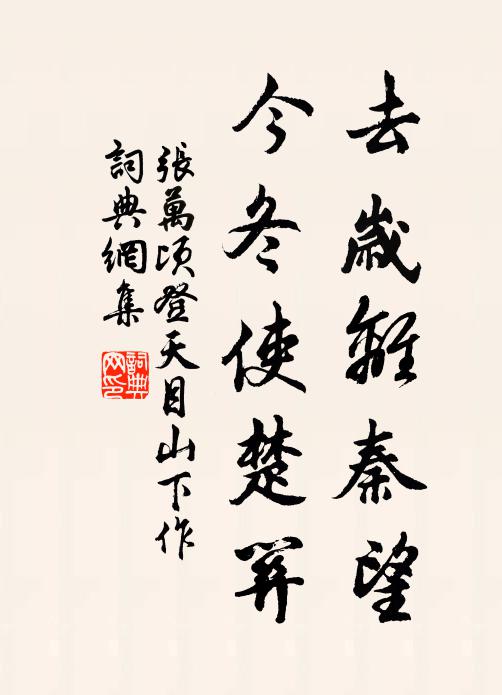 去歲離秦望
今冬使楚關
張萬頃登天目山下作
詞典網集
詞典网印